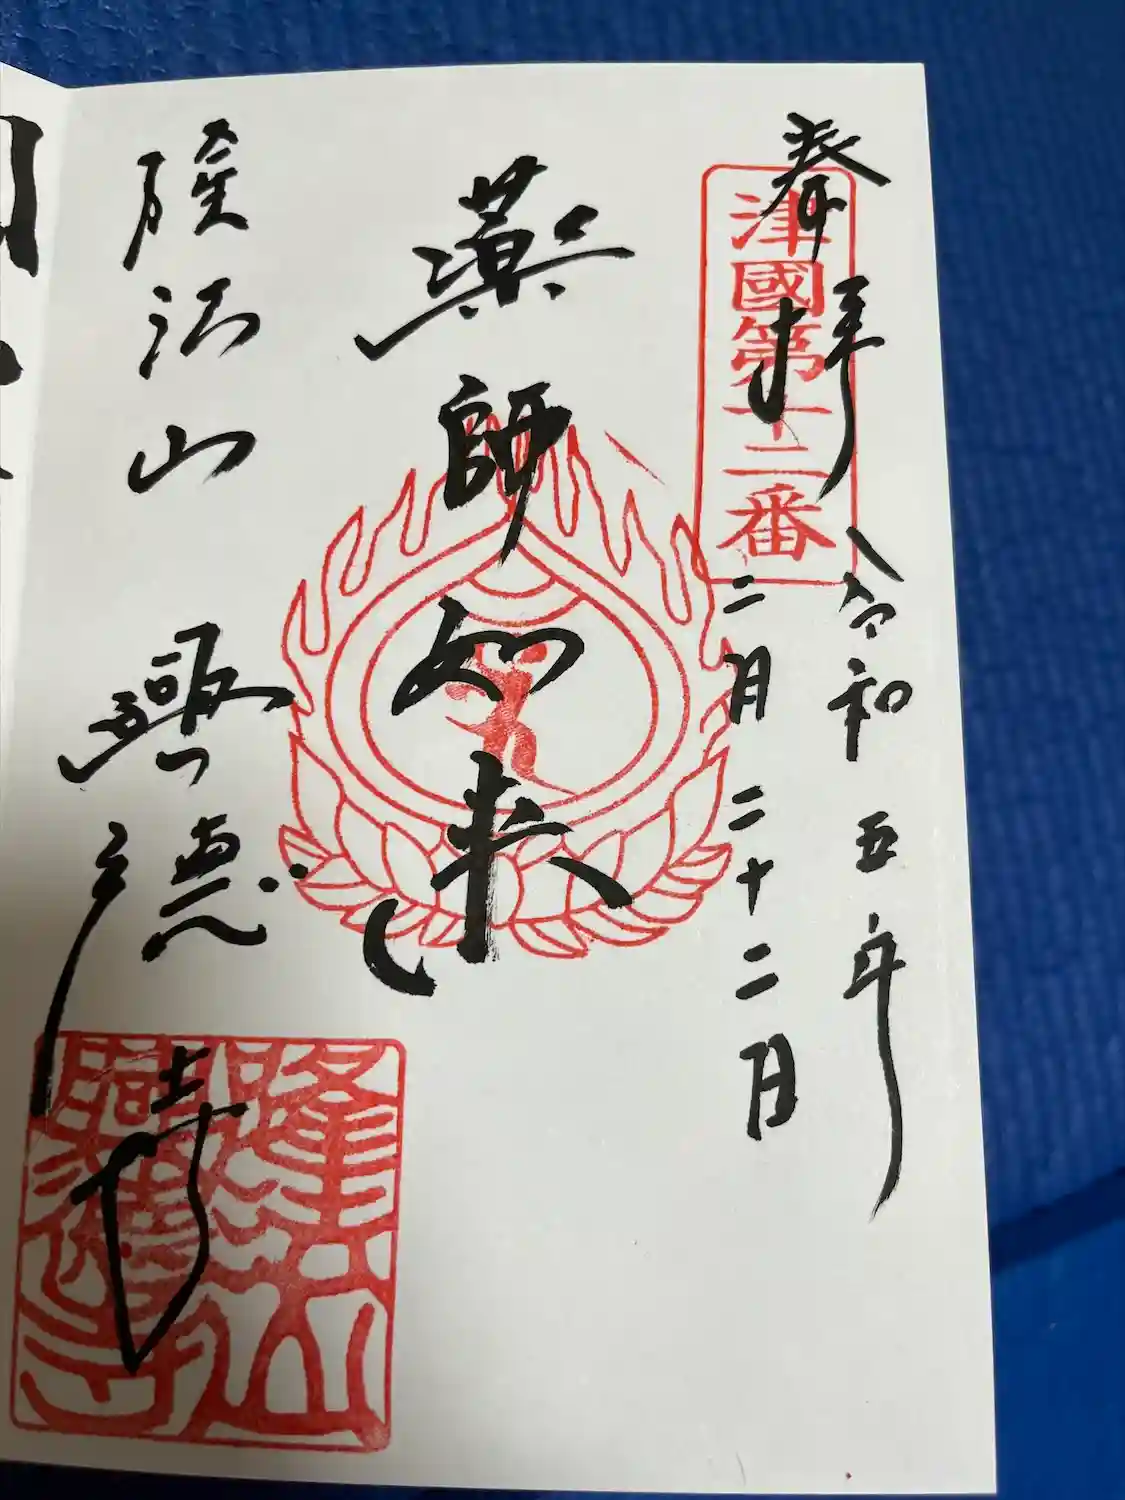 奉拝
津國第十二番
令和五年
二月二十二日
薬師如来
隆法山
興徳寺